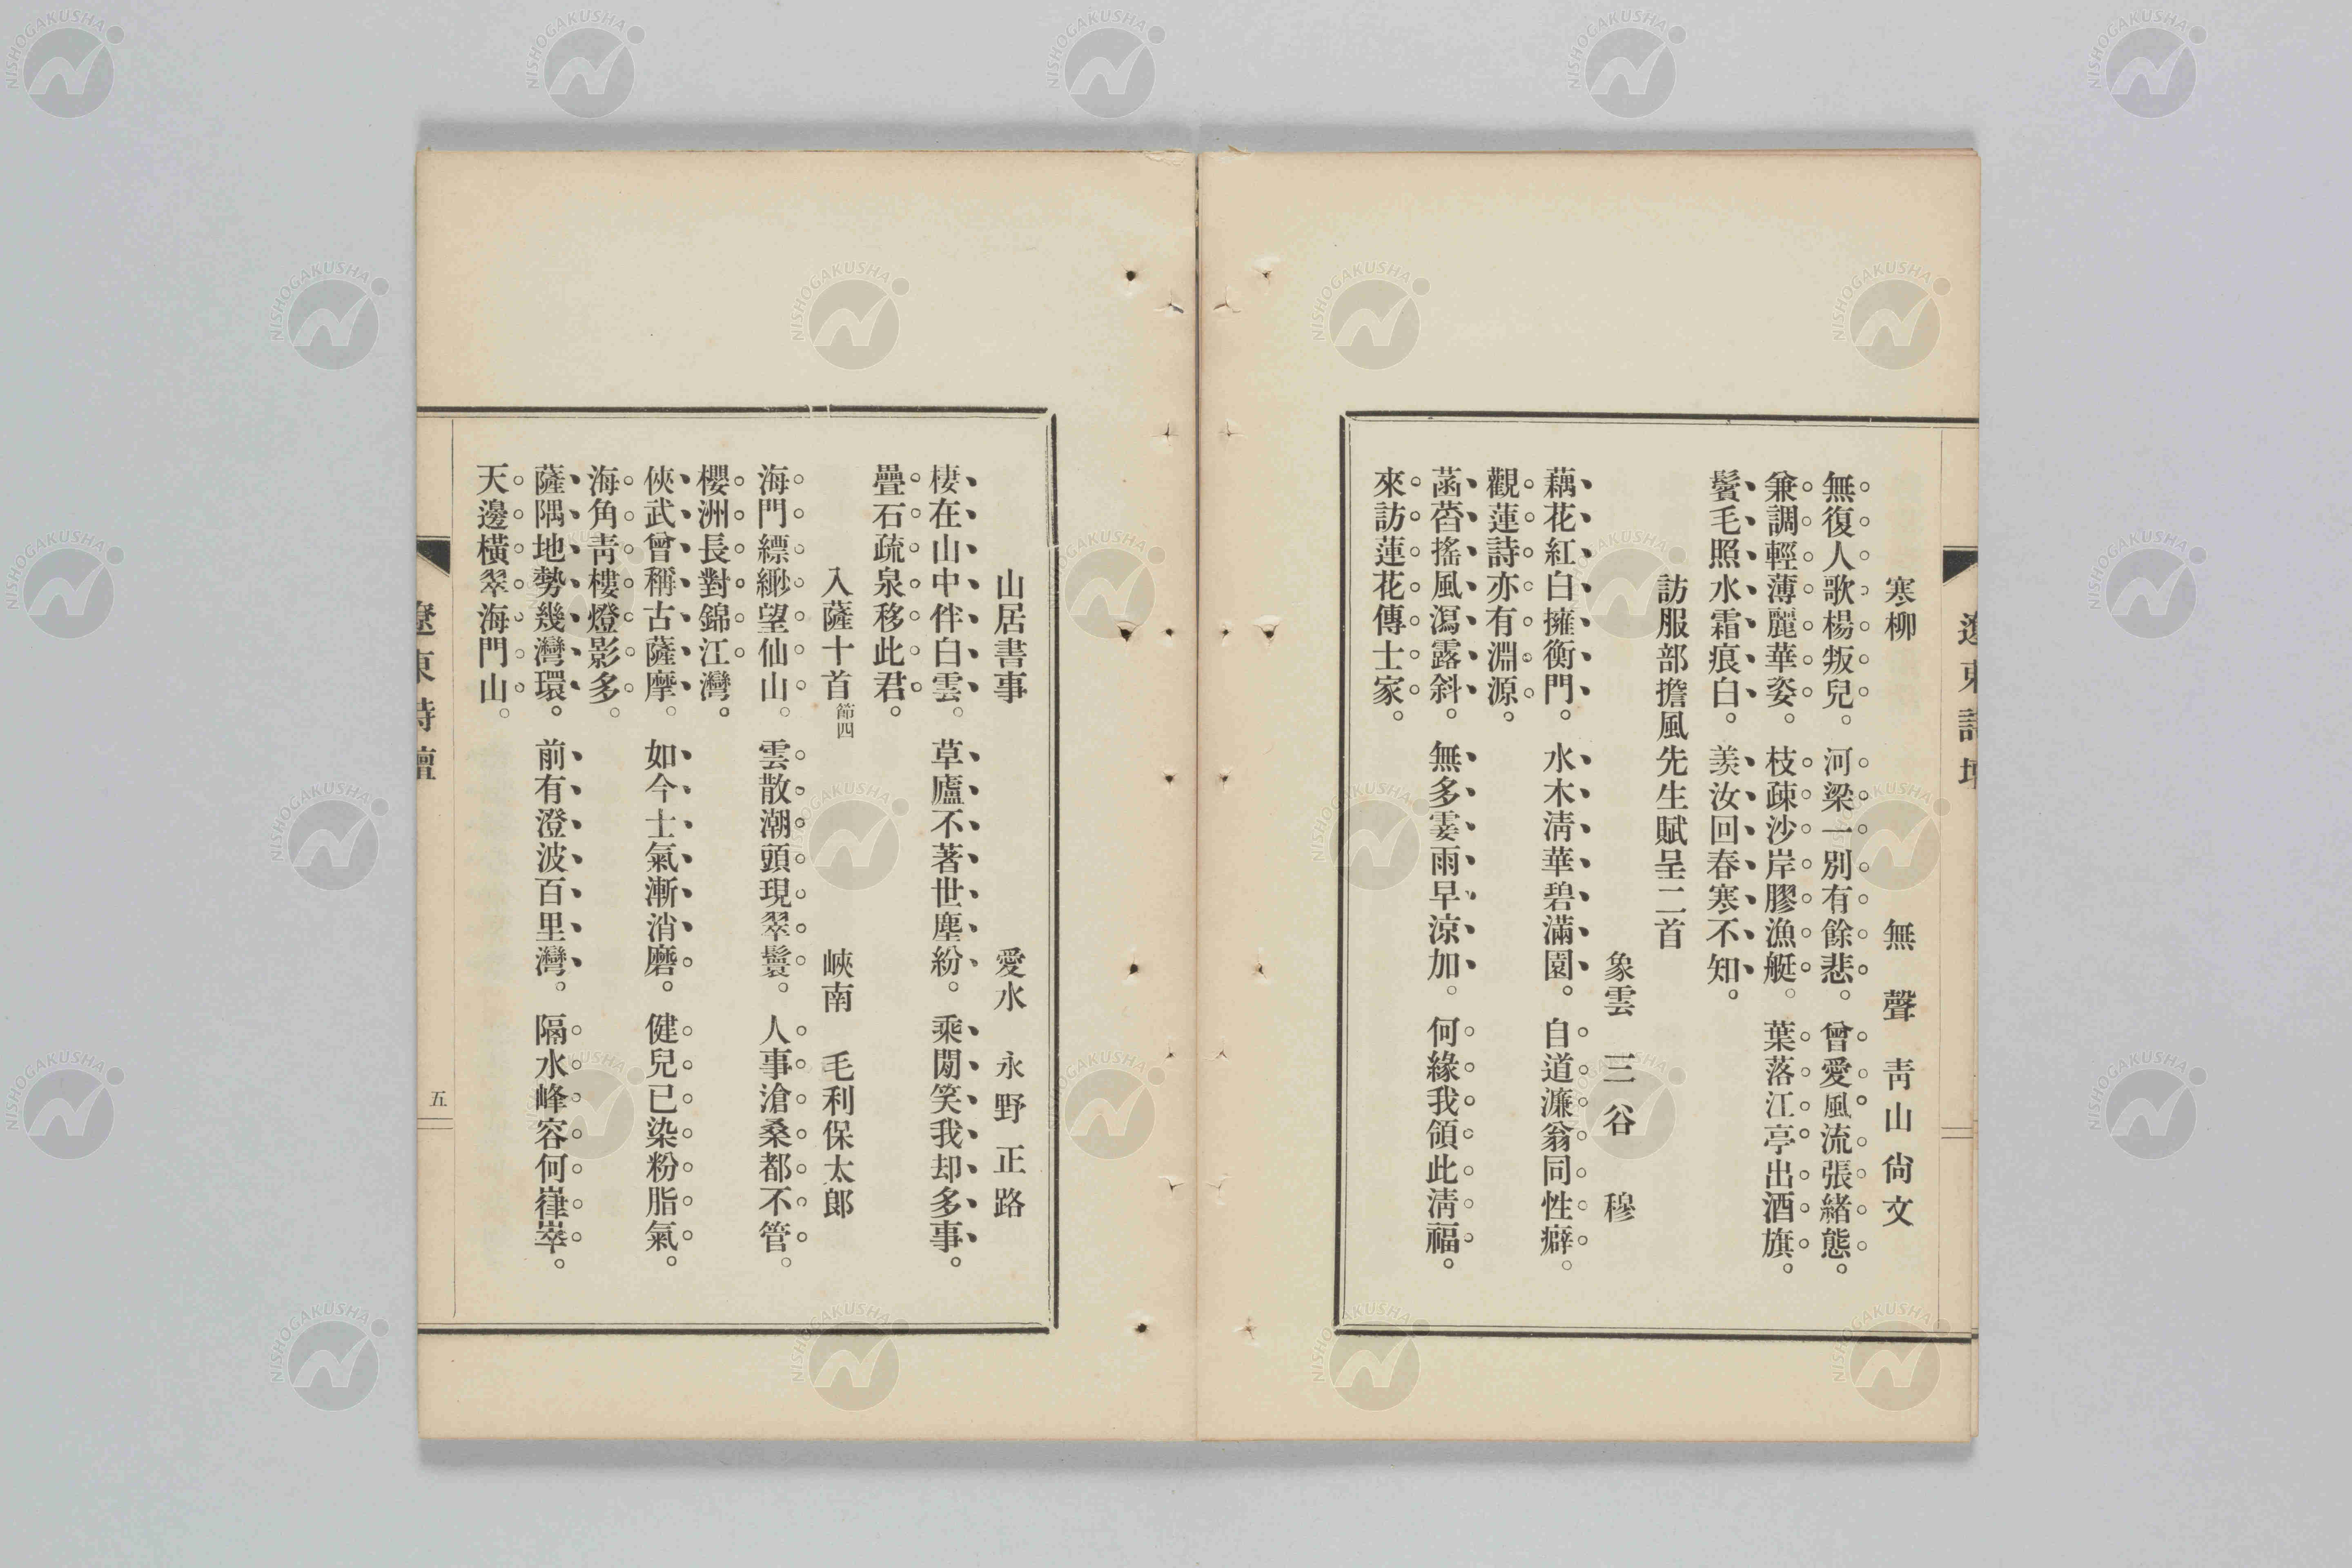 遼東詩壇
寒柳　無聲　靑山尙文
無復人歌楊叛兒。河梁一別有餘悲。曾愛風流張緒態。
兼調輕薄麗華姿。枝疎沙岸膠漁艇。葉落江亭出酒旗。
鬢毛照水霜痕白。羨汝回春寒不知。
訪服部擔風先生賦呈二首
象雲　三谷　穆
藕花紅白擁衡門。水木淸華碧滿園。自道濂翁同性癖。
觀蓮詩亦有淵源。
菡萏搖風瀉露斜。無多霎雨早涼加。何緣我領此淸福。
來訪蓮花傳士家。
山居書事　愛水　永野正路
棲在山中伴白雲。草廬不著世塵紛。乘閒笑我却多事。
疊石疏泉移此君。
入薩十首節四　峽南　毛利保太郞
海門縹緲望仙山。雲散潮頭現翠鬟。人事滄桑都不管。
櫻洲長對錦江灣。
俠武曾稱古薩摩。如今士氣漸消磨。健兒已染粉脂氣。
海角靑樓燈影多。
薩隅地勢幾灣環。前有澄波百里灣。隔水峰容何嵂崒。
天邊橫翠海門山。
遼東詩壇
五
NISHOGAKUSHA